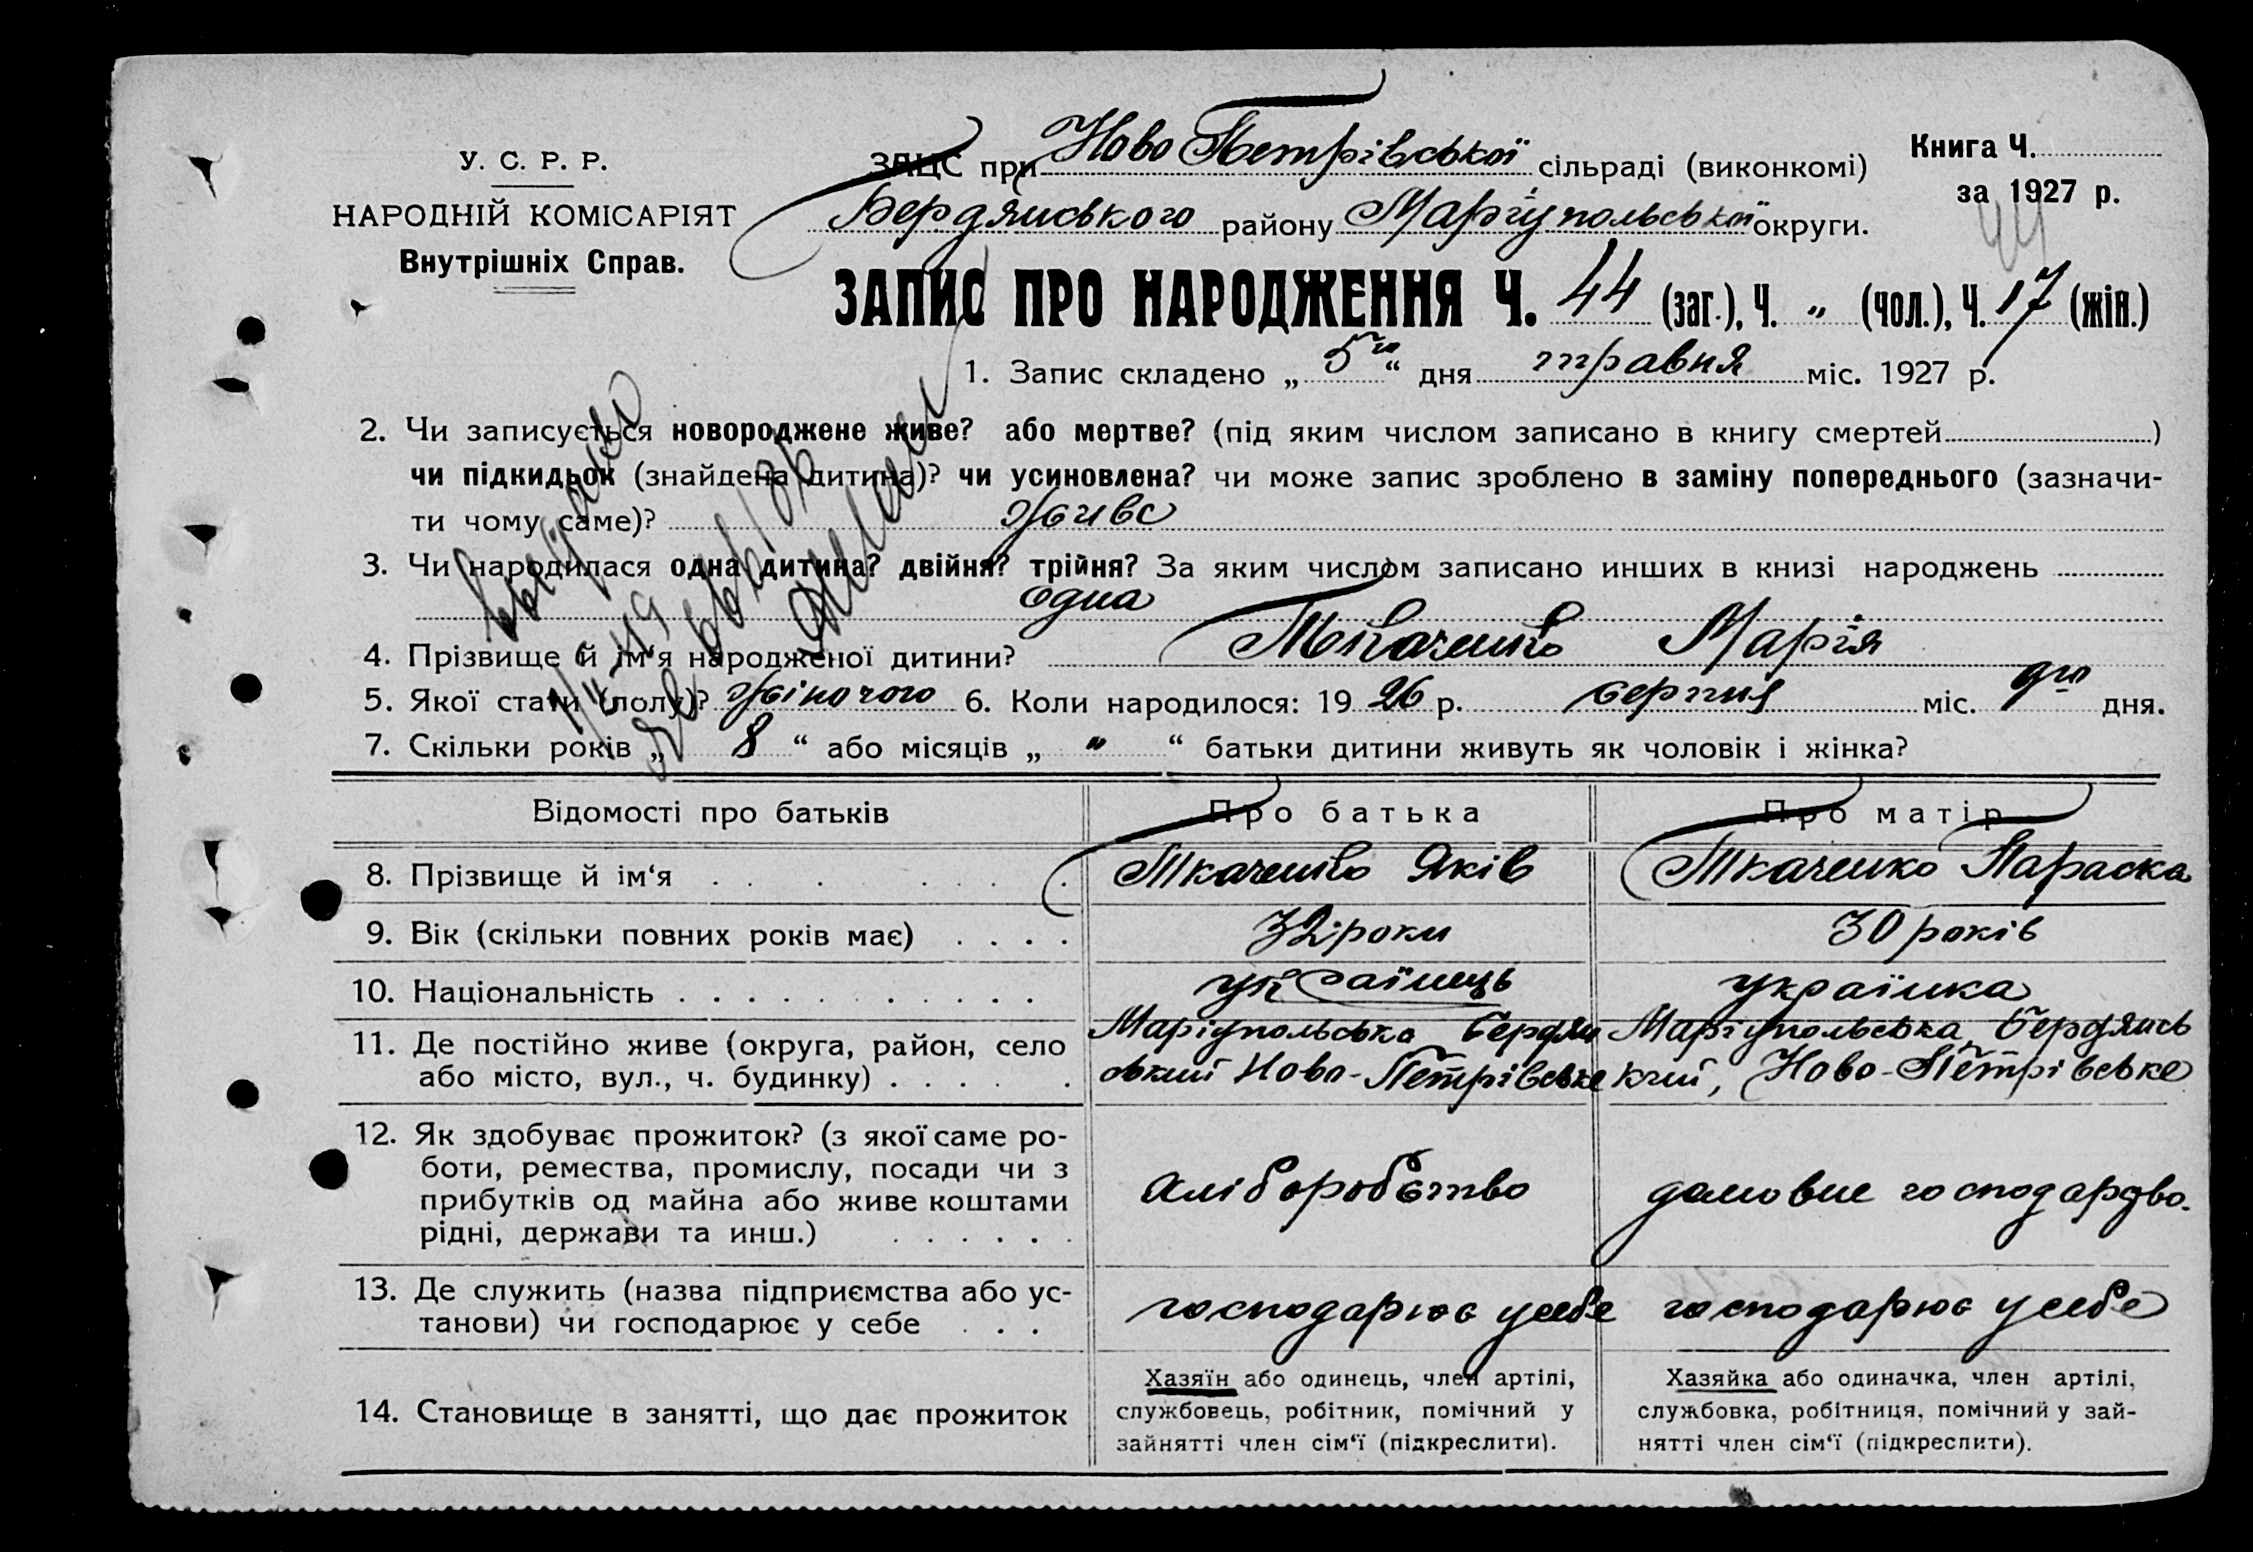 У. С. Р. Р.
НАРОДНІЙ КОМІСАРІЯТ
Внутрішніх Справ.
ЗАЦС при Ново Петрівської сільраді (виконкомі)
Бердянського району Маріупольської округи.
Книга Ч.
за 1927 р.
44
ЗАПИС ПРО НАРОДЖЕННЯ Ч. 44 (заг.), Ч. „ (чол.), Ч. 17 (жін.)
1. Запис складено „ 5го “ дня травня міс. 1927 р.
2. Чи записується новороджене живе? або мертве? (під яким числом записано в книгу смертей )
чи підкидьок (знайдена дитина)? чи усиновлена? чи може запис зроблено в заміну попереднього (зазначи-
ти чому саме)? живе
3. Чи народилася одна дитина? двійня? трійня? За яким числом записано инших в книзі народжень
одна
4. Прізвище й ім‘я народженої дитини? Ткаченко Марія
5. Якої стати (полу)? жіночого 6. Коли народилося: 19 26 р. серпня міс. 9го дня.
7. Скільки років „ 8 “ або місяців „ " “ батьки дитини живуть як чоловік і жінка?
Відомості про батьків Про батька Про матір
8. Прізвище й ім‘я Ткаченко Яків Ткаченко Параска
9. Вік (скільки повних років має) 32 роки 30 років
10. Національність українець українка
11. Де постійно живе (округа, район, село Маріупольська Бердян Маріупольська, Бердянсь
або місто, вул., ч. будинку) ський Ново-Петрівське кий, Ново-Петрівське
12. Як здобуває прожиток? (з якої саме ро-
боти, ремества, промислу, посади чи з
прибутків од майна або живе коштами
рідні, держави та инш.)
хліборобство домовне господарство.
13. Де служить (назва підприємства або ус-
танови) чи господарює у себе господарює у себе господарює у себе
14. Становище в занятті, що дає прожиток
Хазяїн або одинець, член артілі,
службовець, робітник, помічний у
зайнятті член сім‘ї (підкреслити).
Хазяйка або одиначка, член артілі,
службовка, робітниця, помічний у зай-
нятті член сім‘ї (підкреслити).